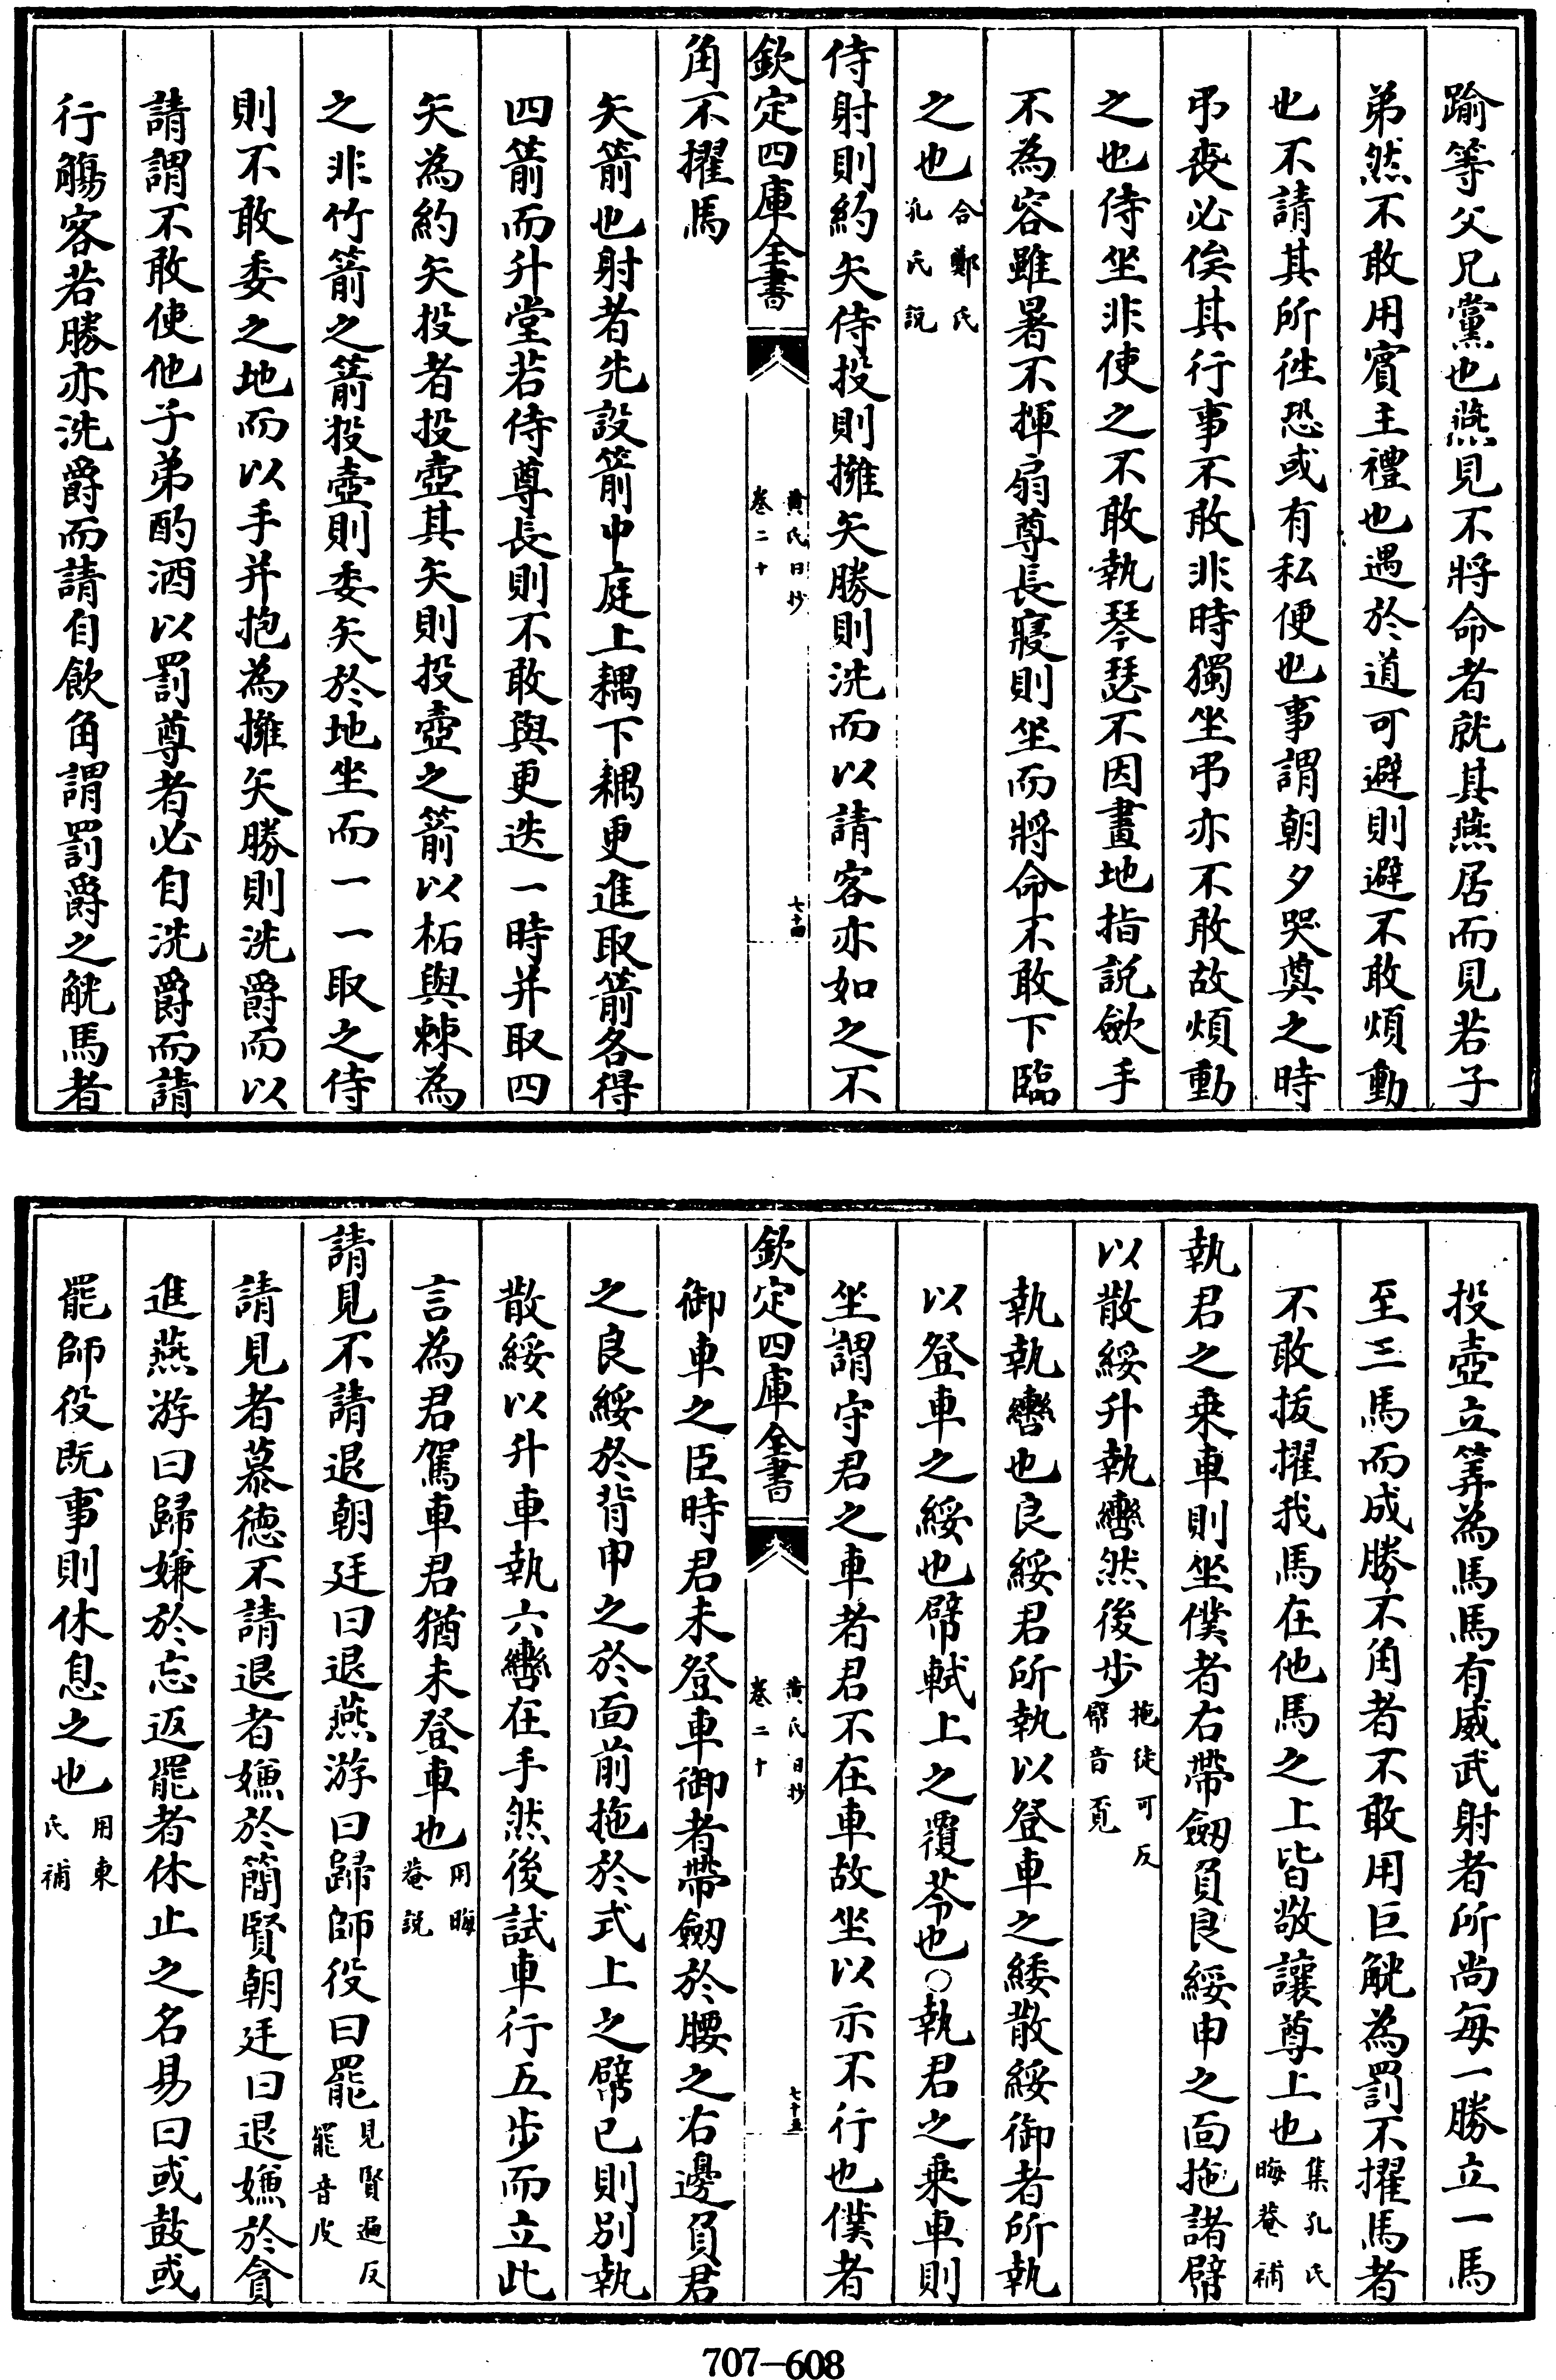 踰等父兄黨也燕見不將命者就其燕居而見若子
弟然不敢用賓主禮也遇於道可避則避不敢煩動
也不請其所徃恐或有私便也事謂朝夕哭奠之時
弔喪必俟其行事不敢非時獨坐弔亦不敢故煩動
之也侍坐非使之不敢執琴瑟不因畫地指説歛手
不為容雖暑不揮扇尊長寢則坐而將命不敢下臨
之也合鄭氏孔氏説
侍射則約矢侍投則擁矢勝則洗而以請客亦如之不
欽定四庫全書 黃氏日抄 卷二十 七十四
角不擢馬
矢箭也射者先設箭中庭上耦下耦更進取箭各得
四箭而升堂若侍尊長則不敢與更迭一時并取四
矢為約矢投者投壺其矢則投壺之箭以柘與棘為
之非竹箭之箭投壺則委矢於地坐而一一取之侍
則不敢委之地而以手并抱為擁矢勝則洗爵而以
請謂不敢使他子弟酌酒以罰尊者必自洗爵而請
行觴客若勝亦洗爵而請自飲角謂罰爵之觥馬者
投壺立筭為馬馬有威武射者所尚每一勝立一馬
至三馬而成勝不角者不敢用巨觥為罰不擢馬者
不敢拔擢我馬在他馬之上皆敬讓尊上也集孔氏晦菴補
執君之乗車則坐僕者右帶劒負良綏申之面拖諸幦
以散綏升執轡然後步拖徒可反幦音覓
執執轡也良綏君所執以登車之緌散綏御者所執
以登車之綏也幦軾上之覆苓也○執君之乗車則
坐謂守君之車者君不在車故坐以示不行也僕者
欽定四庫全書 黃氏日抄 卷二十 七十五
御車之臣時君未登車御者帶劒於腰之右邊負君
之良綏於背申之於面前拖於式上之幦已則别執
散綏以升車執六轡在手然後試車行五步而立此
言為君駕車君猶未登車也用晦菴説
請見不請退朝廷曰退燕游曰歸師役曰罷見賢遍反罷音皮
請見者慕徳不請退者嫌於簡賢朝廷曰退嫌於貪
進燕游曰歸嫌於忘返罷者休止之名易曰或鼓或
罷師役既事則休息之也用東氏補
707-608